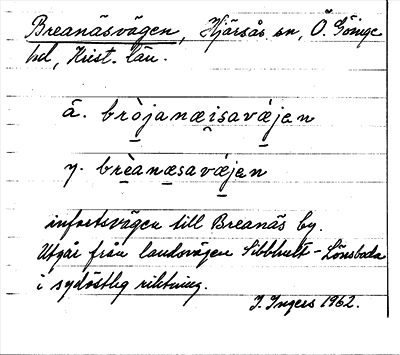 Breanäsvägen, Hjärsås sn, Ö. Göinge
hd, Krist. län.
ä. bròjanæi̯savæjen
y. brèanæsavæjen
infartsvägen till Breanäs by.
Utgår från landsvägen Sibbhult - Lönsboda
i sydöstlig riktning.
I. Ingers 1962.